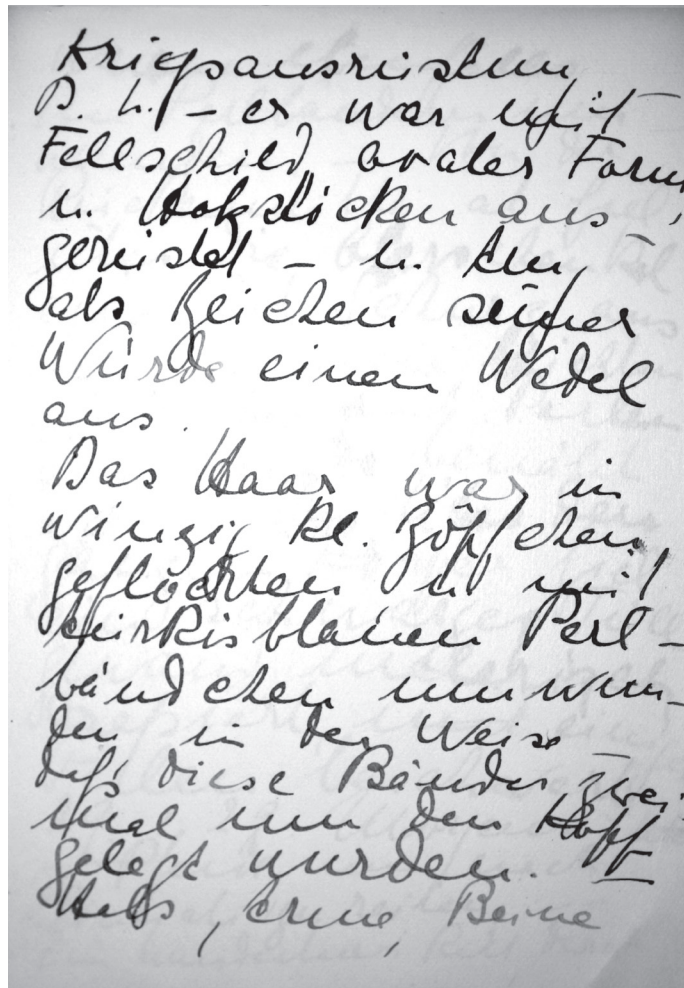 Kriegsausrüstung
D. h. – er war mit
Fellschild ovaler Form
u. Holzstöcken aus-
gerüstet – u.
als Zeichen seiner
Würde einen Wedel
aus.
Das Haar war in
winzig kl. Zöpfchen
geflochten u. mit
türkisblauen Perl-
bändchen umwun-
den in der Weise –
daß diese Bänder zwei-
mal um den Kopf
gelegt wurden. –
Hals, Arme, Beine